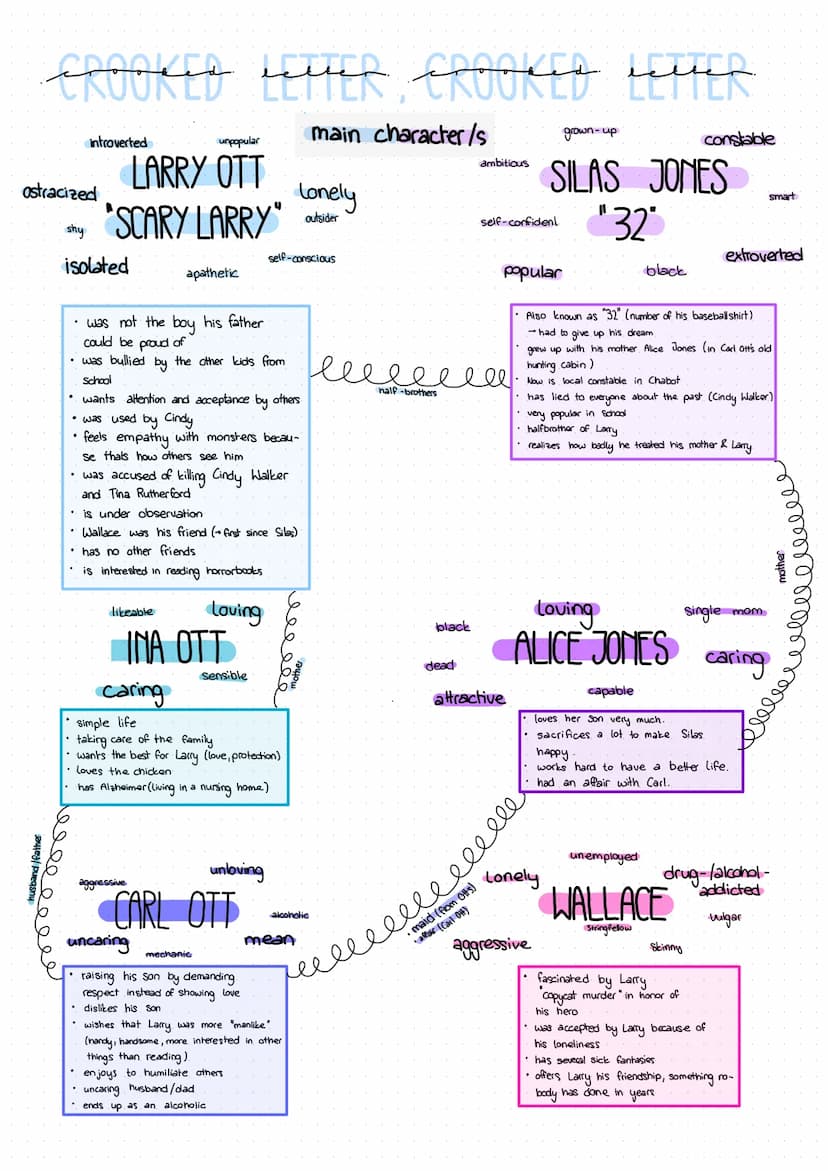 CROOKED LETTER, CROOKED LETTER
crooked letter crooked letter
main character/s
introverted
unpopular
LARRY OTT
ostracized
lonely
"SCARY LARRY"
outsider
shy
self-conscious
isolated
apathetic
grown-up
constable
ambitious
SILAS JONES
smart
self-confident
"32"
extroverted
popular
black
• was not the boy his father
could be proud of
• was bullied by the other kids from
school
• wants attention and acceptance by others
• was used by Cindy
• feels empathy with monsters becau-
se thats how others see him
• was accused of killing Cindy Walker
and Tina Rutherford
• is under observation
• Wallace was his friend (→ first since Silas)
• has no other friends
• is interested in reading horrorbooks
half-brothers
• Also known as "32" (number of his baseballshirt)
→ had to give up his dream
• grew up with his mother Alice Jones (in Carl Ott's old
hunting cabin)
• Now is local constable in Chabot
• has lied to everyone about the past (Cindy Walker)
• very popular in School
• halfbrother of Larry
• realizes how badly he treated his mother & Larry
mother
mother
likeable
loving
INA OTT
sensible
caring
• simple life
• taking care of the family
• wants the best for Larry (love, protection)
• loves the chicken
• has Alzheimer (living in a nursing home)
loving
single mom
black
ALICE JONES
caring
dead
attractive
capable
• loves her son very much.
• sacrifices a lot to make Silas
happy.
• works hard to have a better life.
• had an affair with Carl.
husband/father
• maid (from Otts)
• affair (Carl Ott)
unloving
aggressive
CARL OTT
alcoholic
uncaring
mean
mechanic
• raising his son by demanding
respect instead of showing love
• dislikes his son
• wishes that Larry was more "manlike"
(handy, handsome, more interested in other
things than reading)
• enjoys to humiliate others
• uncaring husband/dad
• ends up as an alcoholic
unemployed
lonely
drug-/alcohol-
addicted
WALLACE
Stringfellow
vulgar
aggressive
Skinny
• fascinated by Larry
"copycat murder" in honor of
his hero
• was accepted by Larry because of
his loneliness
• has several sick fantasies
• offers Larry his friendship, something no-
body has done in years